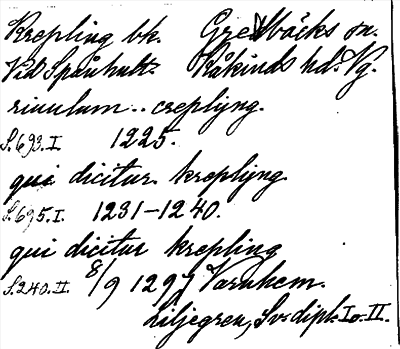 Krepling bk. Grevbäcks sn.
Vid Spånhult. Kåkinds hd. Vg.
riuulum .. creplijng.
S. 693. I. 1225.
qui dicitur kreplijng
S. 695. I. 1231-1240.
qui dicitur krepling
S. 240. II. 8/9 1297 Varnhem.
Liljegren, Sv. dipl. I o. II.